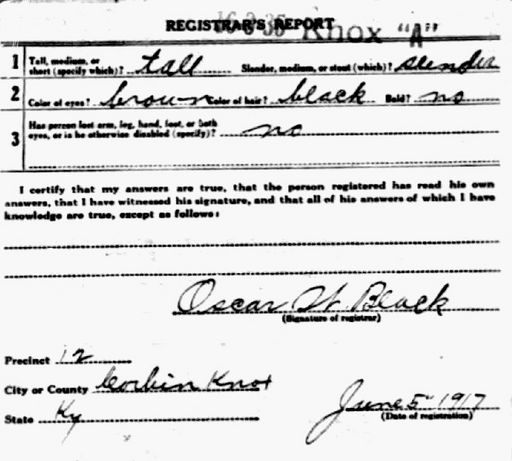 REGISTRAR'S REPORT
16-3-35 Knox "A"
1 Tall, medium, or short (specify which)? tall Slender, medium, or stout (which)? slender
2 Color of eyes? brown Color of hair? black Bald? no
3 Has person lost arm, leg, hand, foot, or both eyes, or is he otherwise disabled (specify)? no
I certify that my answers are true, that the person registered has read his own
answers, that I have witnessed his signature, and that all of his answers of which I have
knowledge are true, except as follows:
Oscar W. Black
(Signature of registrar)
Precinct 12
City or County Corbin Knox
State Ky
June 5 1917
(Date of registration)